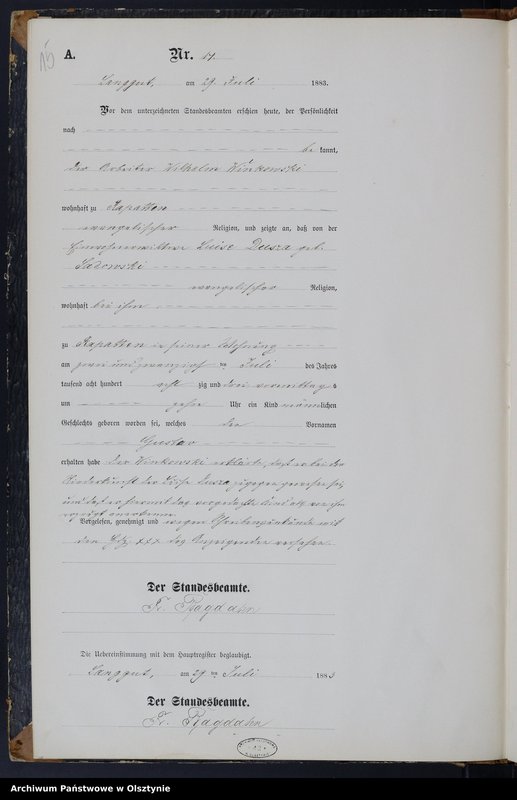 A. Nr. 14.
Langgut, am 29. Juli 1883.
Vor dem unterzeichneten Standesbeamten erschien heute, der Persönlichkeit
nach
be kannt,
der Arbeiter Wilhelm Winkowski
wohnhaft zu Rapatten
evangelischer Religion, und zeigte an, daß von der
Einwohnerwittwe Luise Dusza geb.
Sadowski
evangelischer Religion,
wohnhaft bei ihm
zu Rapatten in seiner Wohnung
am zwei und zwanzigsten Juli des Jahres
tausend acht hundert acht zig und drei Vormittag s
um zehn Uhr ein Kind männ lichen
Geschlechts geboren worden sei, welches den Vornamen
Gustav
erhalten habe. Der Winkowski erklärte, daß er bei der
Niederkunft der Luise Dusza zugegen gewesen sei
und daß er hiermit das vorgedachte Kind als von ihm
erzeugt anerkenne.
Vorgelesen, genehmigt und wegen Schreibensunkunde mit
den Hdz. xxx des Anzeigenden versehen.
Der Standesbeamte.
Fr. Ragdahn
Die Uebereinstimmung mit dem Hauptregister beglaubigt.
Langgut, am 29 ten Juli 1883
Der Standesbeamte.
Fr. Ragdahn
Archiwum Państwowe w Olsztynie